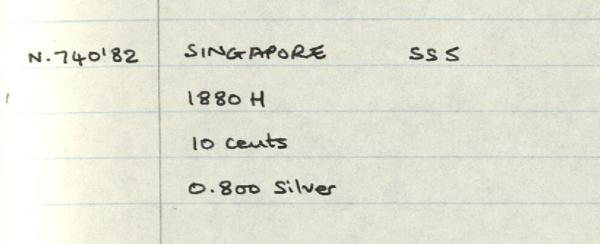 N.740'82 SINGAPORE SS5
1880 H
10 cents
0.800 Silver